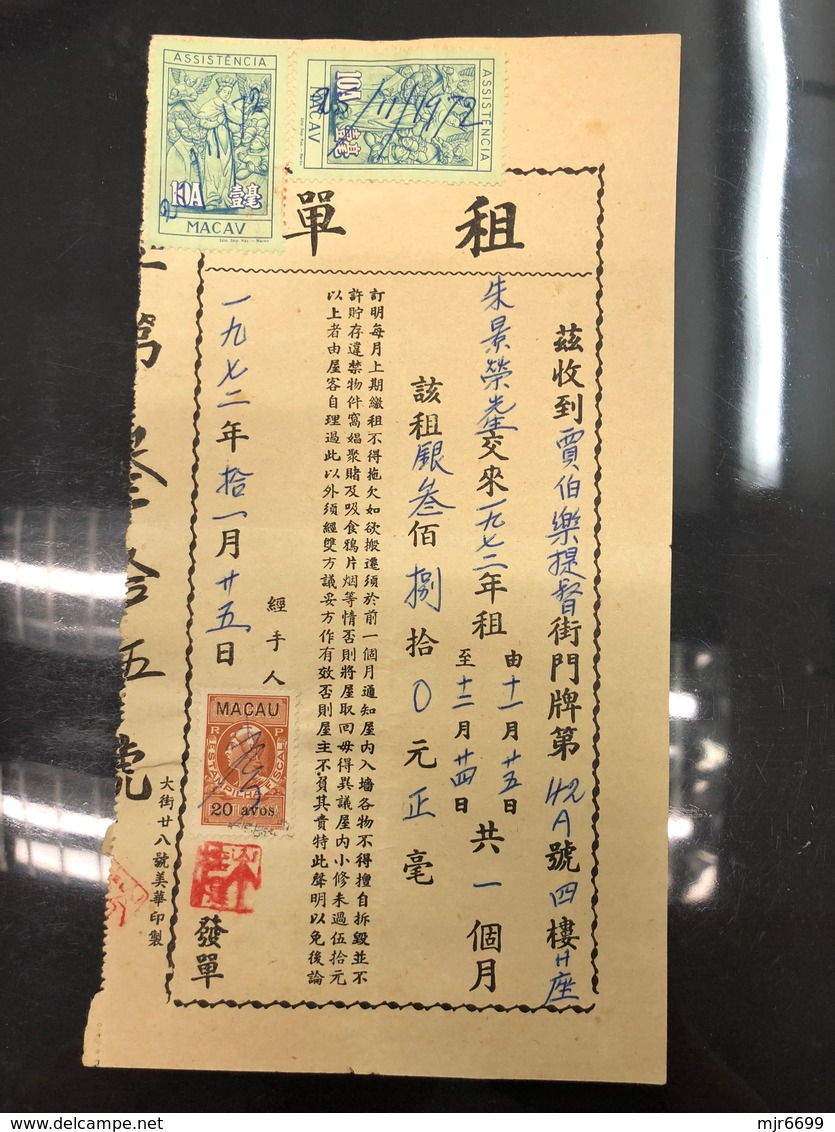 ASSISTÊNCIA
10A 壹毫
MACAV
ASSISTÊNCIA
25/11/1972
10A 壹毫
MACAV
租單
茲收到賈伯樂提督街門牌第42A號四樓H座
朱景榮先生交來一九七二年租由十一月廿五日至十二月廿四日共一個月
該租銀叁佰捌拾0元正毫
訂明每月上期繳租不得拖欠如欲搬遷須於前一個月通知屋內入墻各物不得擅自拆毀並不
許貯存違禁物件窩娼聚賭及吸食鴉片烟等情否則將屋取回毋得異議屋內小修未過伍拾元
以上者由屋客自理過此以外須經雙方議妥方作有效否則屋主不負其責特此聲明以免後論
經手人
一九七二年拾一月廿五日
MACAU
R P
ESTAMPILHA FISCAL
20 avos
發單
第叁拾五號
大街廿八號美華印製
delcampe.net
mjr6699